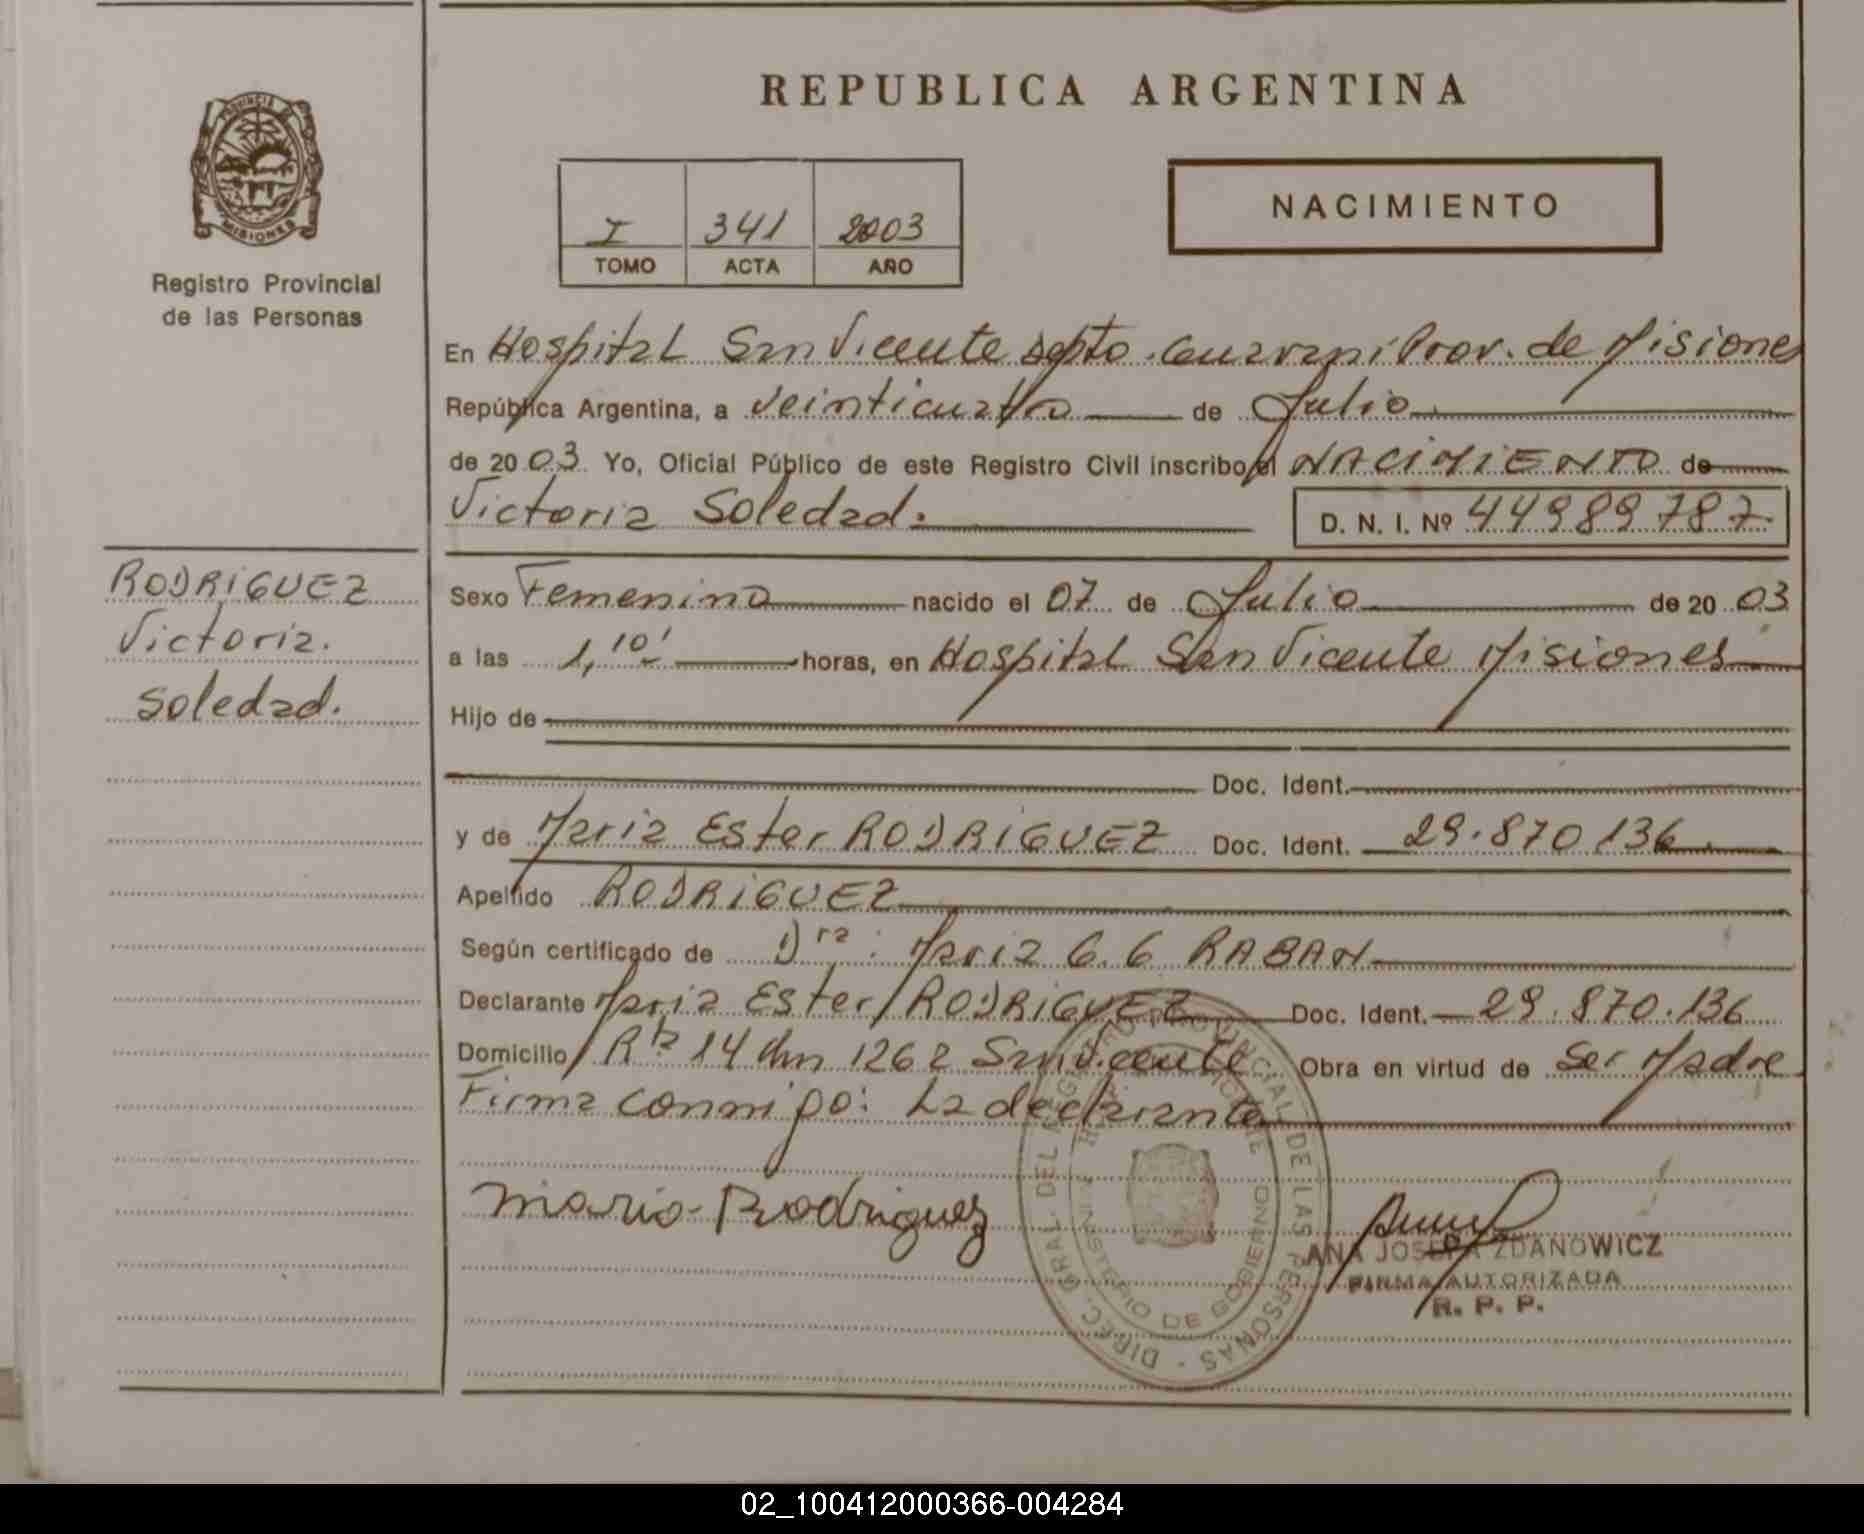 REPUBLICA ARGENTINA
PROVINCIA MISIONES
Registro Provincial
de las Personas
I 341 2003
TOMO ACTA AÑO
NACIMIENTO
En Hospital San Vicente Depto. Guarani Prov. de Misiones
República Argentina, a veinticuatro de Julio
de 2003 Yo, Oficial Público de este Registro Civil inscribo el NACIMIENTO de
Victoria Soledad. D. N. I. Nº 44989787
RODRIGUEZ
Victoria.
Soledad.
Sexo Femenino nacido el 07 de Julio de 2003
a las 1,10' horas, en Hospital San Vicente Misiones
Hijo de
Doc. Ident.
y de Maria Ester RODRIGUEZ Doc. Ident. 29.870136
Apellido RODRIGUEZ
Según certificado de Dra: Maria G. G RABAN
Declarante Maria Ester RODRIGUEZ Doc. Ident. 29.870.136
Domicilio Rta 14 Km 1262 San Vicente Obra en virtud de Ser Madre
Firma conmigo: La declarante
Maria Rodriguez
DIREC. GRAL. DEL REGISTRO PROVINCIAL DE LAS PERSONAS
MINISTERIO DE GOBIERNO
ANA JOSEFA ZDANOWICZ
FIRMA AUTORIZADA
R. P. P.
02_100412000366-004284